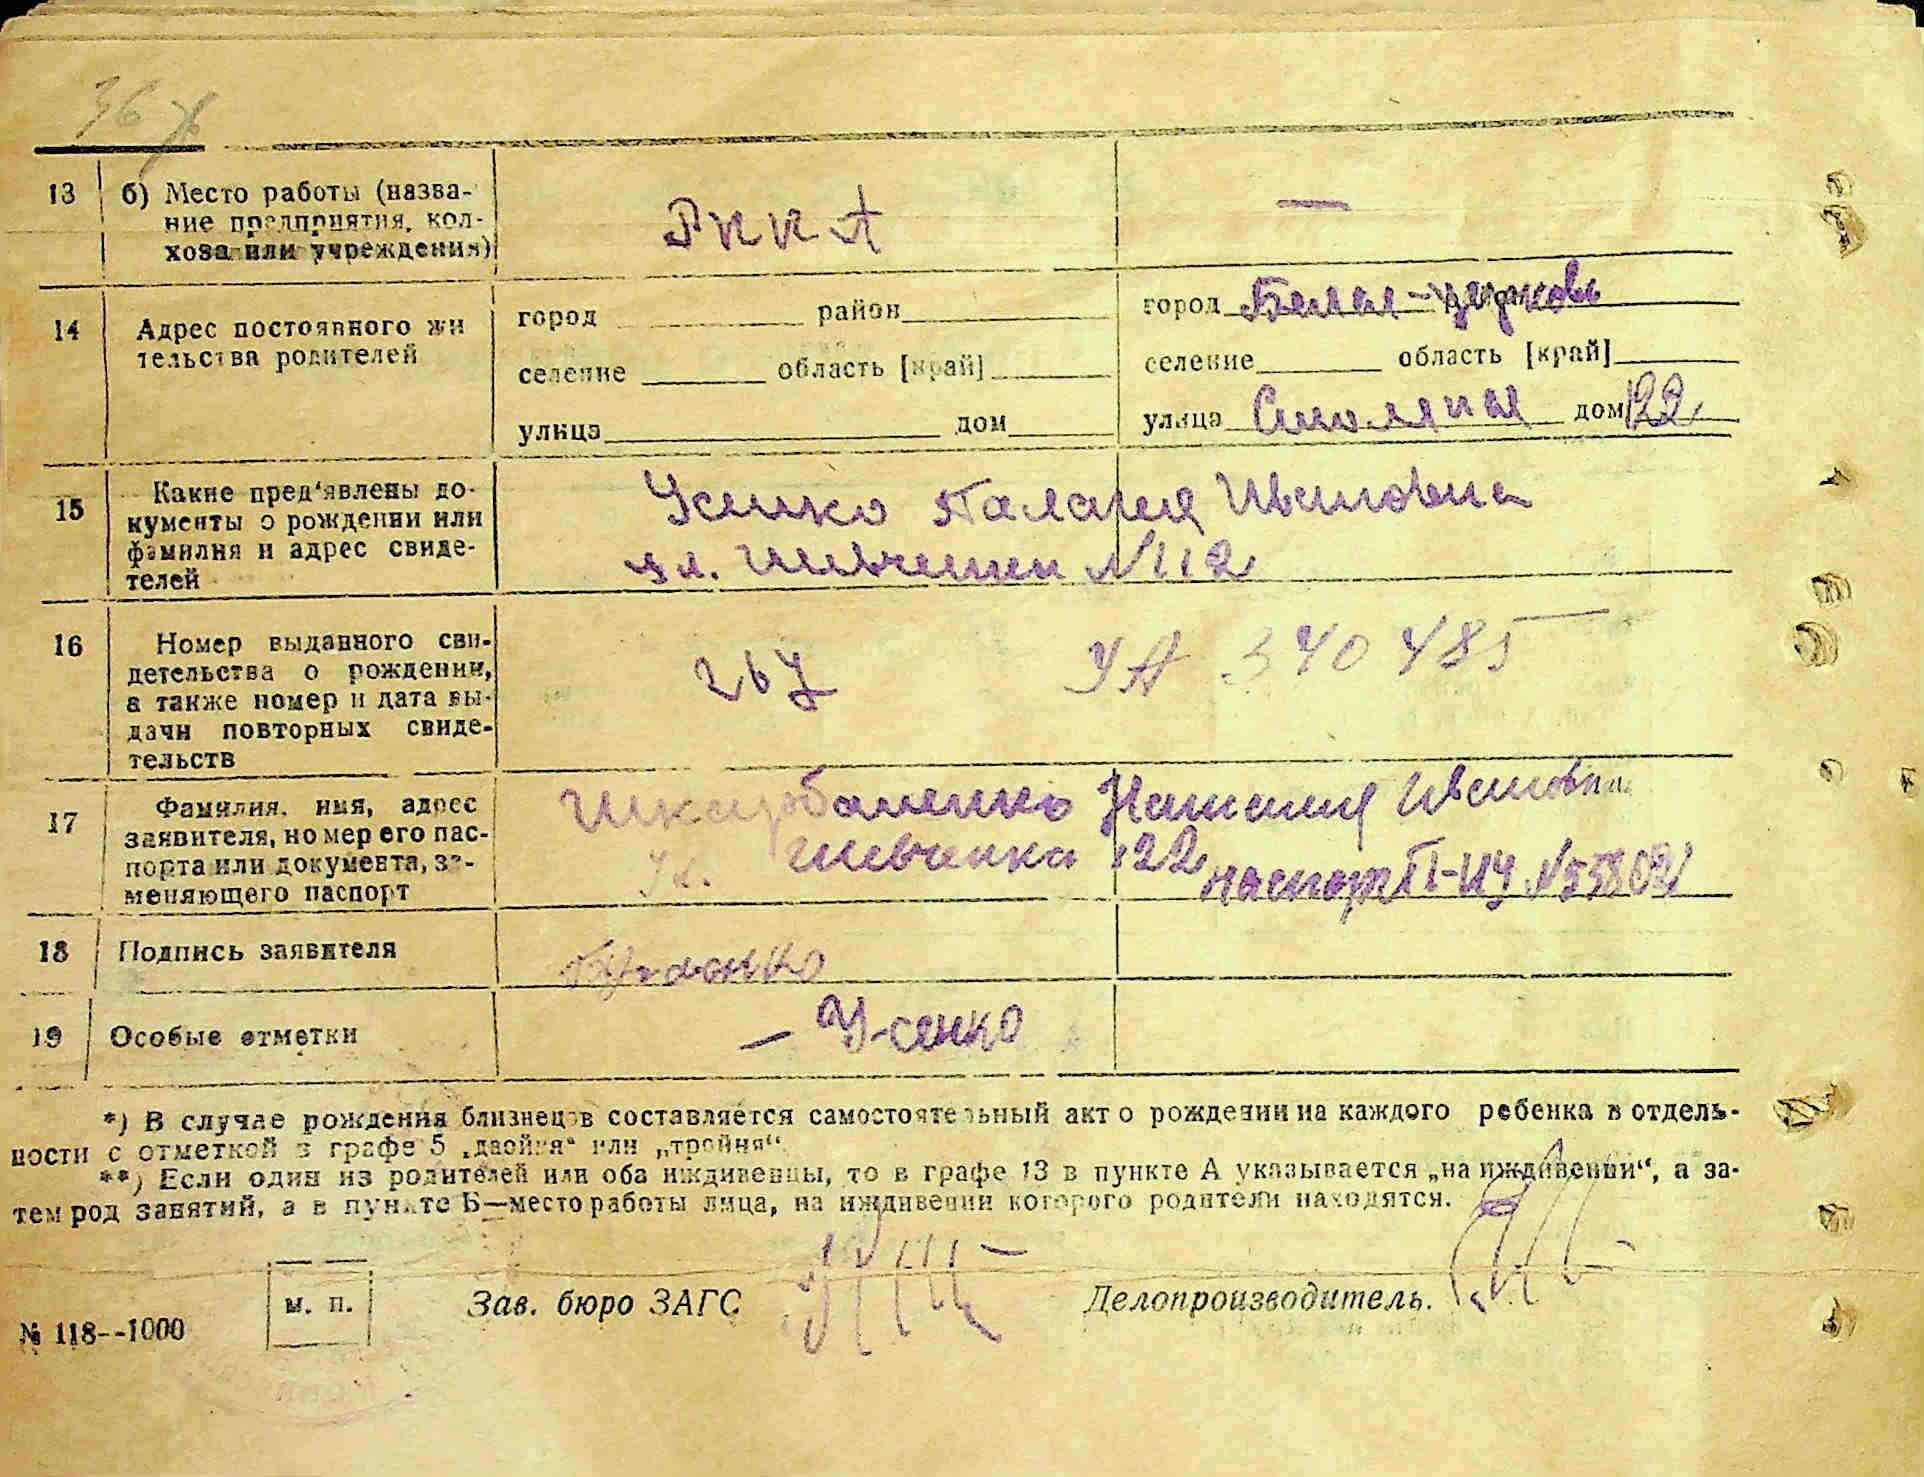 36
13 б) Место работы (назва-
ние предприятия, кол-
хоза или учреждения)
РККА —
14 Адрес постоянного жи
тельства родителей
город район
селение область [край]
улица дом
город Белая-Церковь
селение область [край]
улица дом 122
15 Какие пред'явлены до-
кументы о рождении или
фамилия и адрес свиде-
телей
Усенко Палагея Ивановна
ул. Шевченки №112
16 Номер выданного сви-
детельства о рождении,
а также номер и дата вы-
дачи повторных свиде-
тельств
267 УА 340485
17 Фамилия, имя, адрес
заявителя, номер его пас-
порта или документа, за-
меняющего паспорт
Наталия Ивановна
Ул. Шевченка 122 паспорт
18 Подпись заявителя
19 Особые отметки
— Усенко
*) В случае рождения близнецов составляется самостоятельный акт о рождении на каждого ребенка в отдель-
ности с отметкой в графе 5 „двойня“ или „тройня“.
**) Если один из родителей или оба иждивенцы, то в графе 13 в пункте А указывается „на иждивении“, а за-
тем род занятий, а в пункте Б—место работы лица, на иждивении которого родители находятся.
м. п. Зав. бюро ЗАГС Делопроизводитель.
№ 118--1000